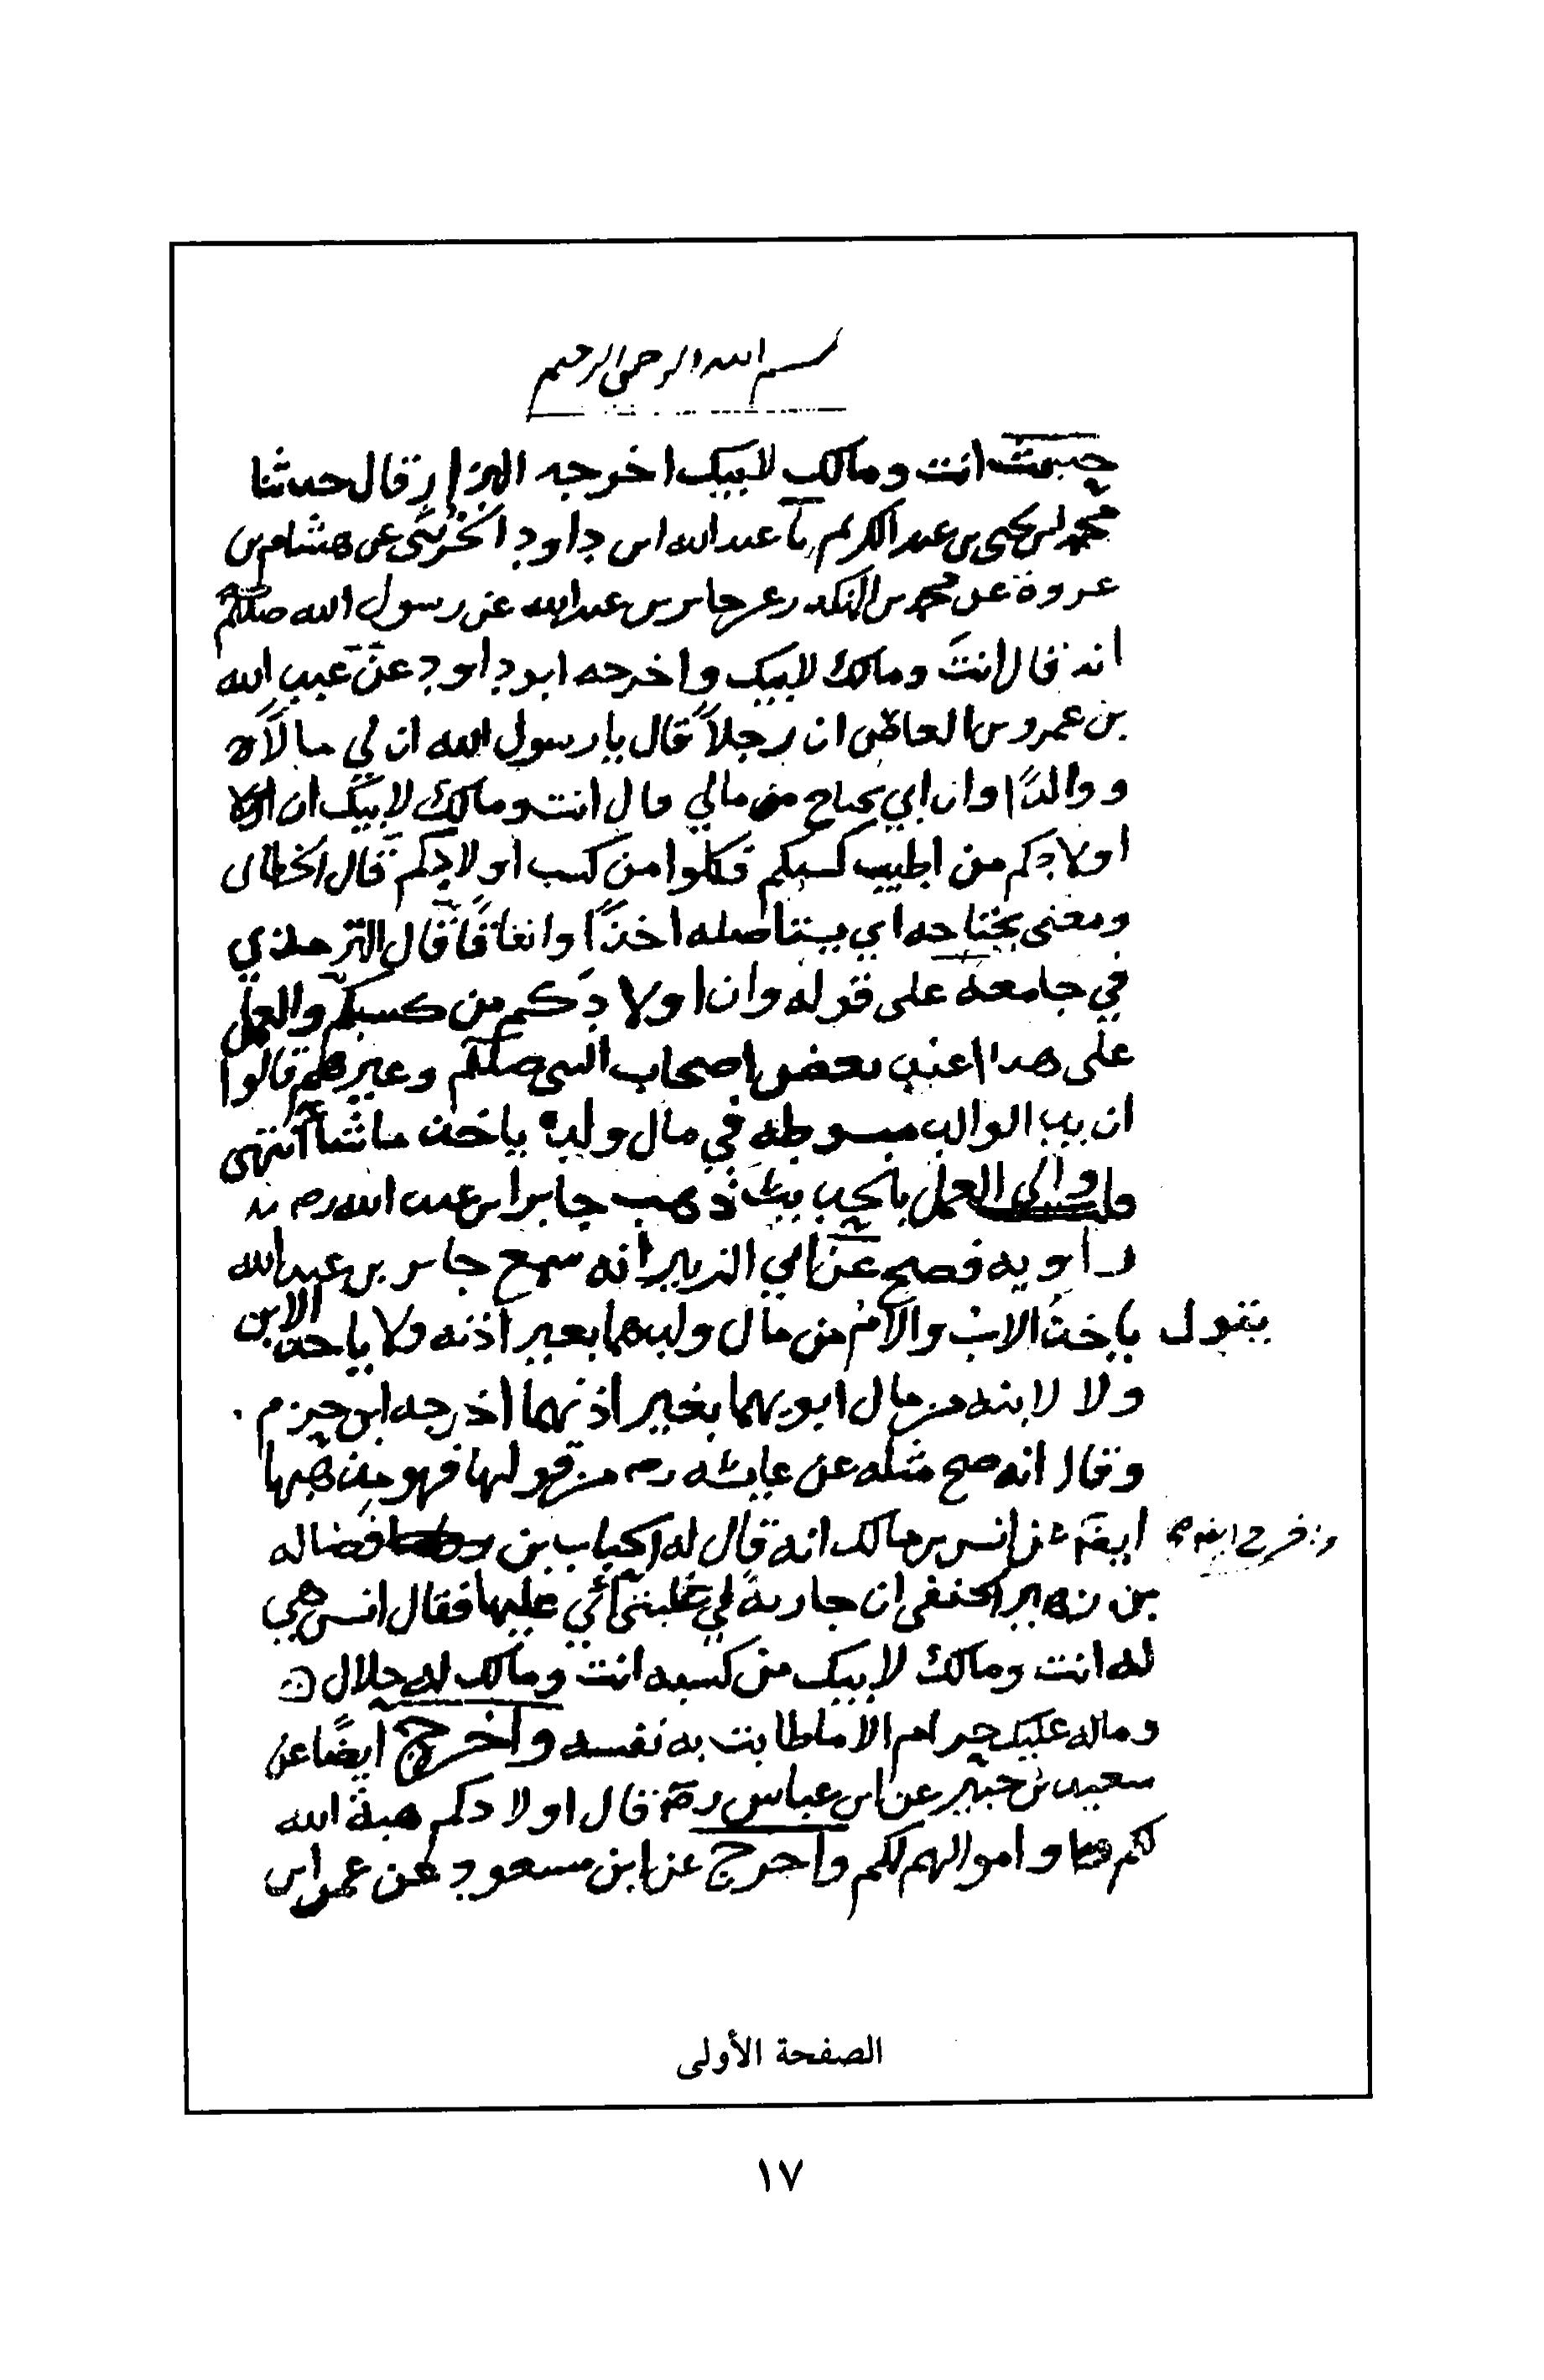 بسم الله الرحمن الرحيم
حديث انت ومالك لابيك اخرجه البزار قال حدثنا
محمد بن يحيى بن عبد الكريم نا عبد الله ابن داود الخريبي عن هشام بن
عروة عن محمد بن المنكدر عن جابر بن عبد الله عن رسول الله صللم
انه قال انت ومالك لابيك واخرجه ابو داود عن عبد الله
بن عمرو بن العاص ان رجلاً قال يا رسول الله ان لي مالاً
ووالدًا وان ابي يجتاح من مالي قال انت ومالك لابيك ان
اولادكم من اطيب كسبكم فكلوا من كسب اولادكم قال الخطابي
ومعنى يجتاحه اي يستاصله اخذًا وانفاقًا قال الترمذي
في جامعه على قوله وان اولادكم من كسبكم والعمل
على هذا عند بعض اصحاب النبي صللم وغيرهم قالوا
ان يد الوالد مبسوطة في مال ولده ياخذ ما شاء انتهى
والى العمل بالحديث ذهب جابر ابن عبد الله رص
راويه فصح عن ابي الزبير انه سمع جابر بن عبد الله
يقول ياخذ الاب والام من مال ولدهما بغير اذنه ولا ياخذ الابن
ولا لابنه من مال ابويهما بغير اذنهما اخرجه ابن حزم
وقال انه صح مثله عن عايشه رص من قولها فهو مذهبها
واخرج ايضا عن انس بن مالك انه قال له الحباب بن فضاله
بن زهير الحنفي ان جارية لي غلبني ابي عليها فقال انس هي
له انت ومالك لابيك من كسبه انت ومالك له حلال
وماله عليك حرام الا ما طابت به نفسه واخرج ايضًا عن
سعيد بن جبير عن ابن عباس رص قال اولادكم هبة الله
لكم واموالهم لكم واخرج عن ابن مسعود عن عمر ابن
الصفحة الأولى
١٧